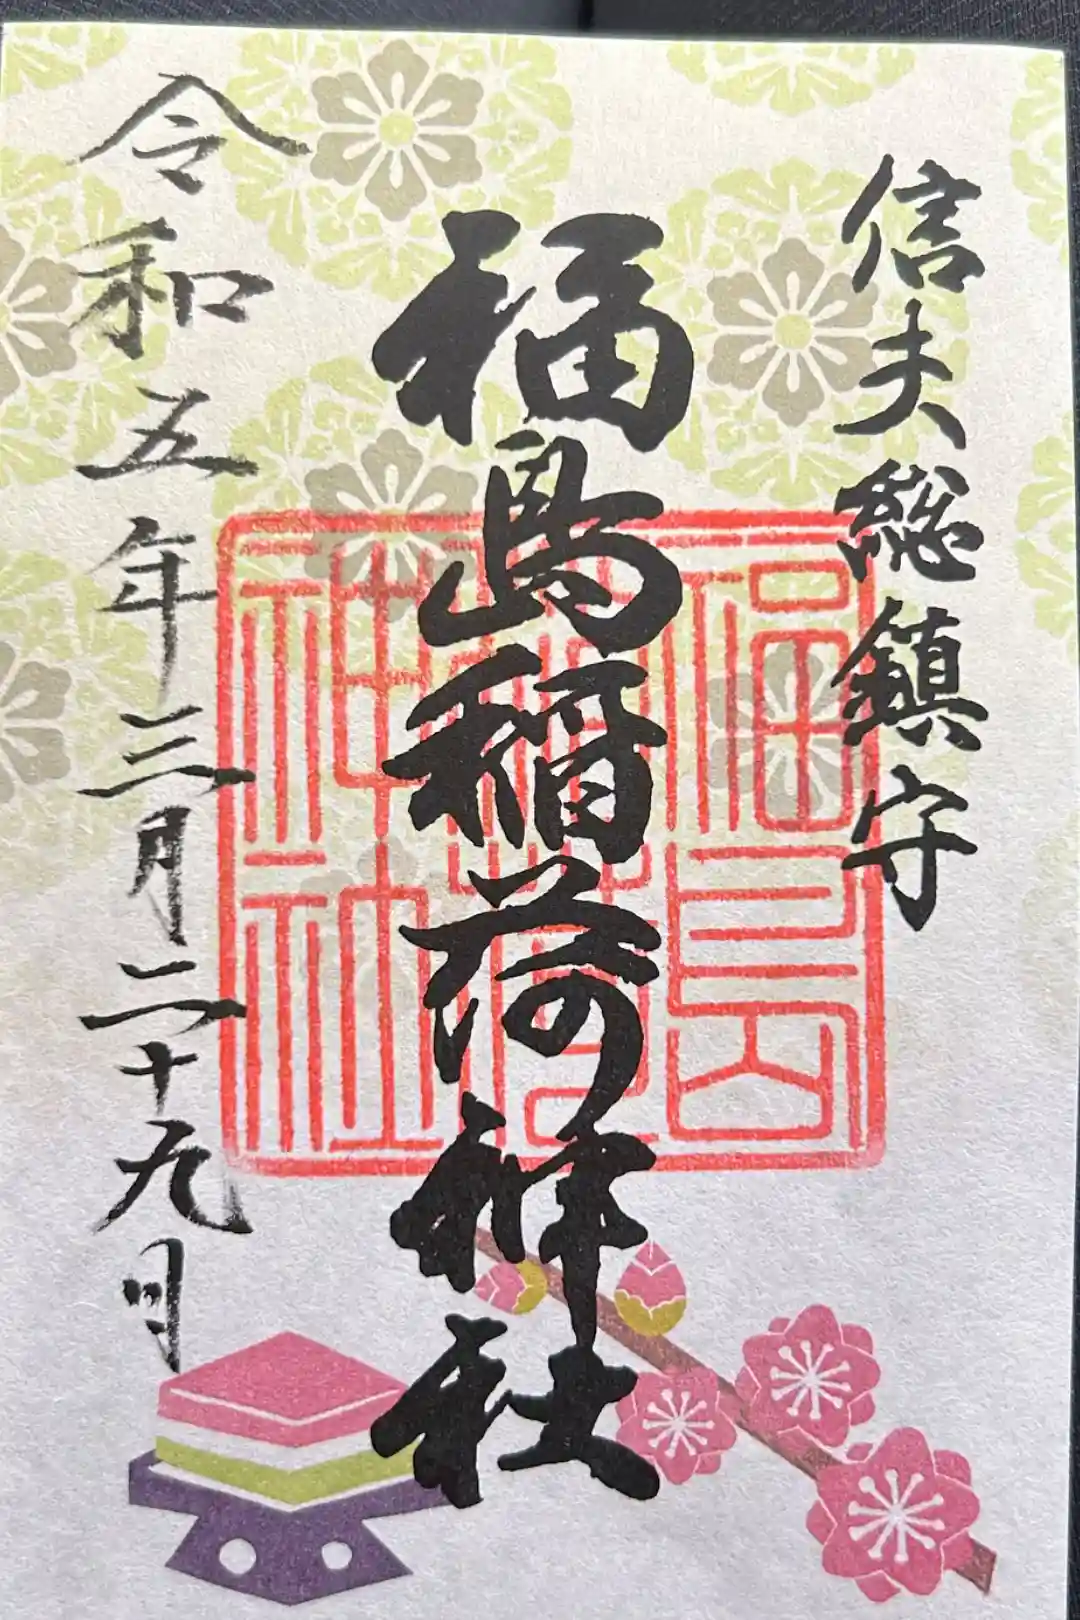 信夫総鎮守
福島稲荷神社
福島稲荷神社
令和五年三月二十九日